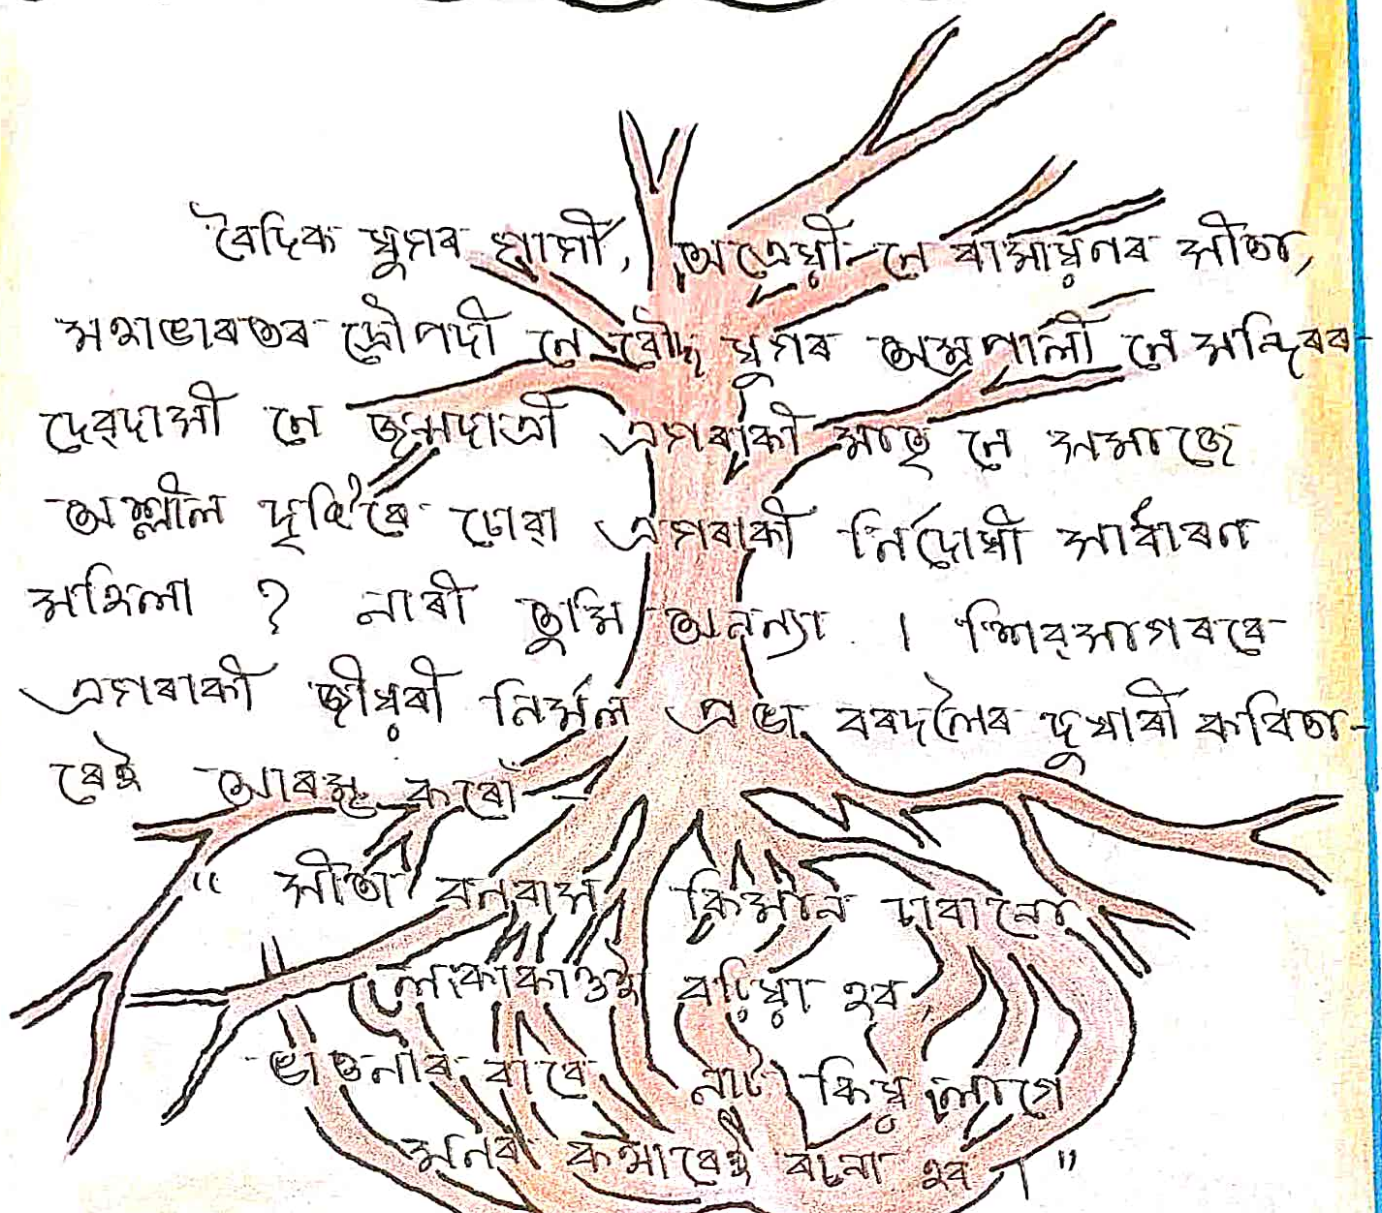 বৈদিক যুগৰ গাৰ্গী, অত্ৰেয়ী নে ৰামায়ণৰ সীতা,
মহাভাৰতৰ দ্ৰৌপদী নে বৌদ্ধ যুগৰ অম্ৰপালী নে মন্দিৰৰ-
দেৱদাসী নে জন্মদাত্ৰী এগৰাকী মাতৃ নে সমাজে
অশ্লীল দৃষ্টিৰে চোৱা এগৰাকী নিৰ্দোষী সাধাৰণ
মহিলা ? নাৰী তুমি অনন্যা । শিৱসাগৰৰে
এগৰাকী জীয়ৰী নিৰ্মল প্ৰভা বৰদলৈৰ দুষাৰী কবিতা-
ৰেই আৰম্ভ কৰোঁ -
" সীতা বনবাস কিমান চাবানো
লোকাকাওই ৰাম হব,
ভাওনাৰ বাবে নাট কিয় লাগে
মনৰ কথাৰেই ৰচনা হব । "